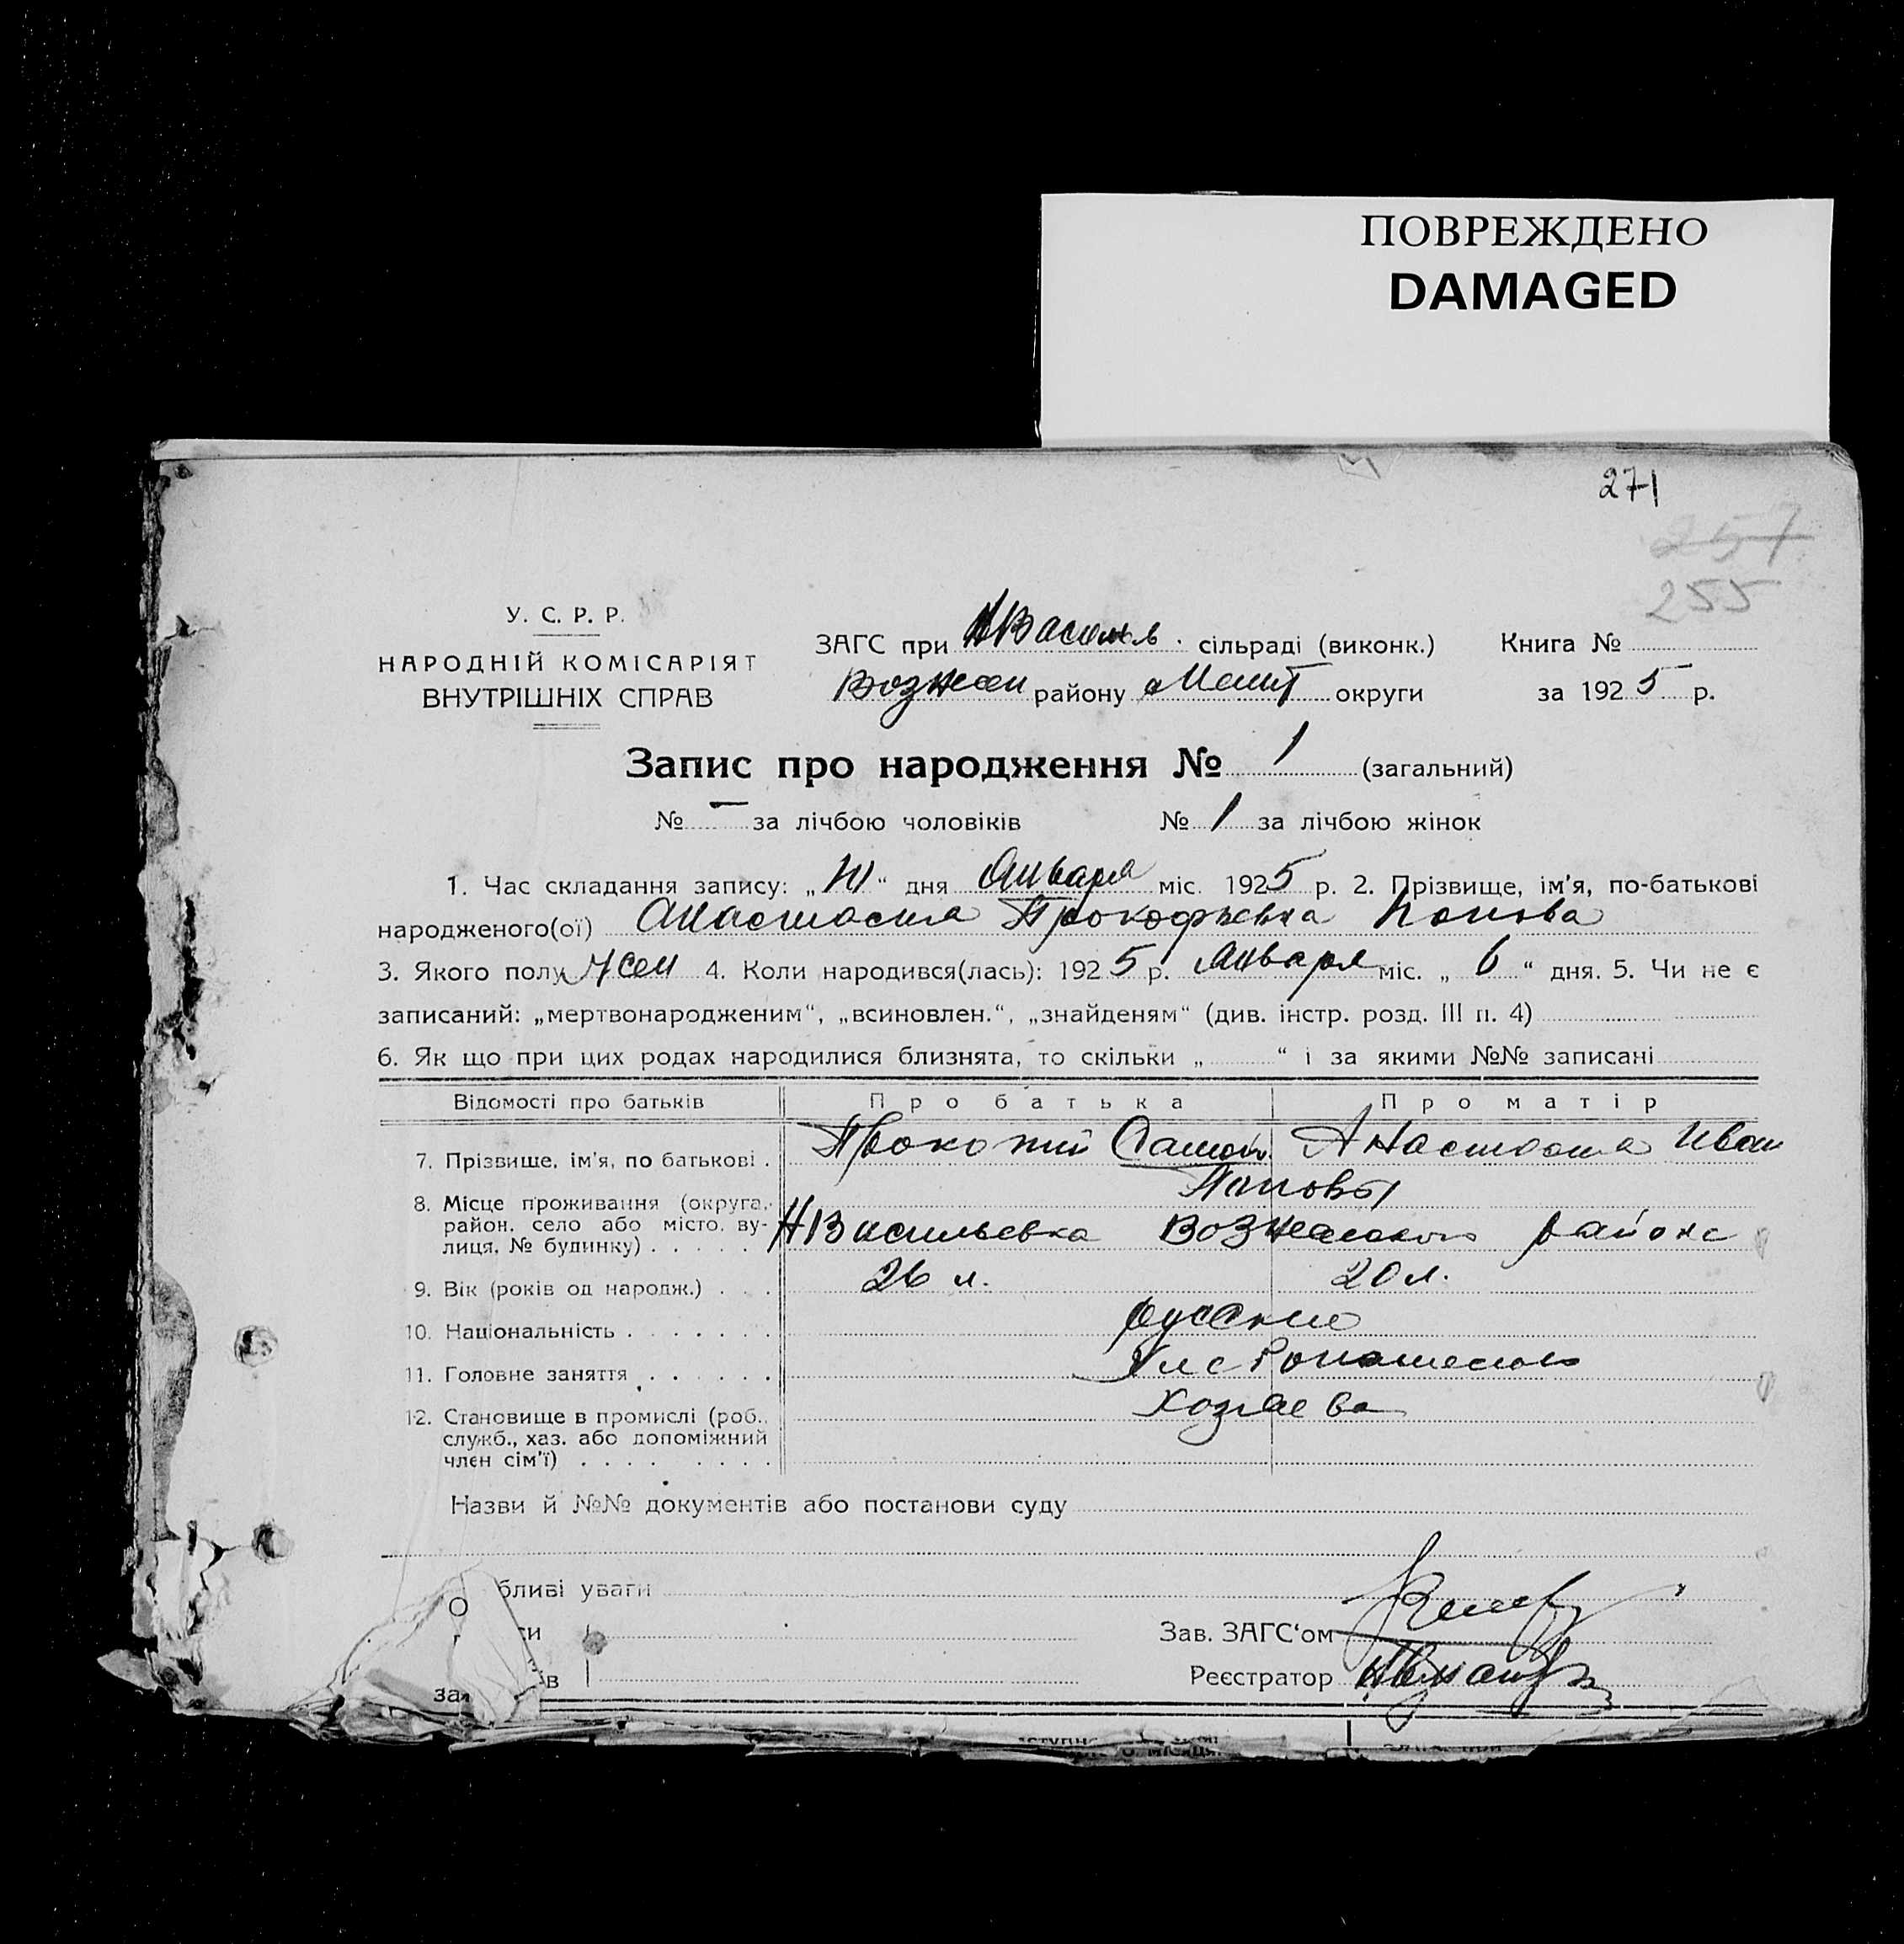 ПОВРЕЖДЕНО
DAMAGED
271
257
255
У. С. Р. Р.
НАРОДНІЙ КОМІСАРІЯТ
ВНУТРІШНІХ СПРАВ
ЗАГС при НВасиль. сільраді (виконк.) Книга №
Вознесен району Мелит округи за 1925 р.
Запис про народження № 1 (загальний)
№ — за лічбою чоловіків № 1 за лічбою жінок
1. Час складання запису: „ “ дня Января міс. 1925 р. 2. Прізвище, ім'я, по-батькові
народженого(ої) Анастасия Прокофьевна Попова
3. Якого полу жен 4. Коли народився(лась): 1925 р. Января міс. „ 6 “ дня. 5. Чи не є
записаний: „мертвонародженим“, „всиновлен.“, „знайденям“ (див. інстр. розд. III п. 4)
6. Як що при цих родах народилися близнята, то скільки „ “ і за якими №№ записані
Відомості про батьків Про батька Про матір
7. Прізвише, ім'я, по батькові . Прокопий Самой. Анастасия Иван
Поповы
8. Місце проживання (округа,
район, село або місто, ву-
лиця, № будинку) . . . . . НВасильевка Вознесенского района
9. Вік (років од народж.) . . . 26 л. 20 л.
10. Національність . . . . . . . русские
11. Головне заняття . . . . . .
12. Становище в промислі (роб.,
служб., хаз. або допоміжний
член сім'ї) . . . . . . . . . Хозяева
Назви й №№ документів або постанови суду
О бливі уваги
си Зав. ЗАГС‘ом
ів Реєстратор
зая